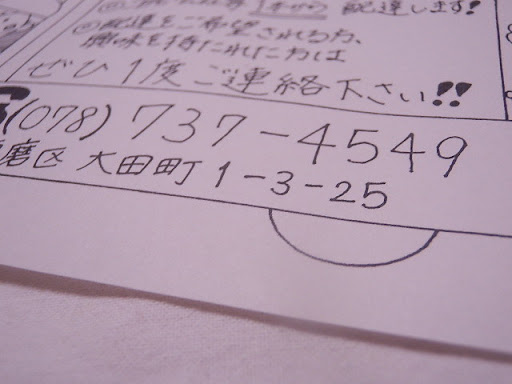 1本から 配達します!
◎配達をご希望される方、
興味を持たれた方は
ぜひ1度ご連絡下さい!!
(078) 737-4549
磨区 大田町 1-3-25